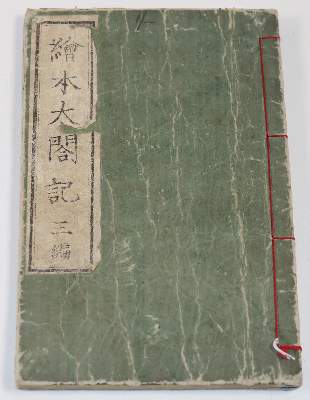 繪本太閤記 三編